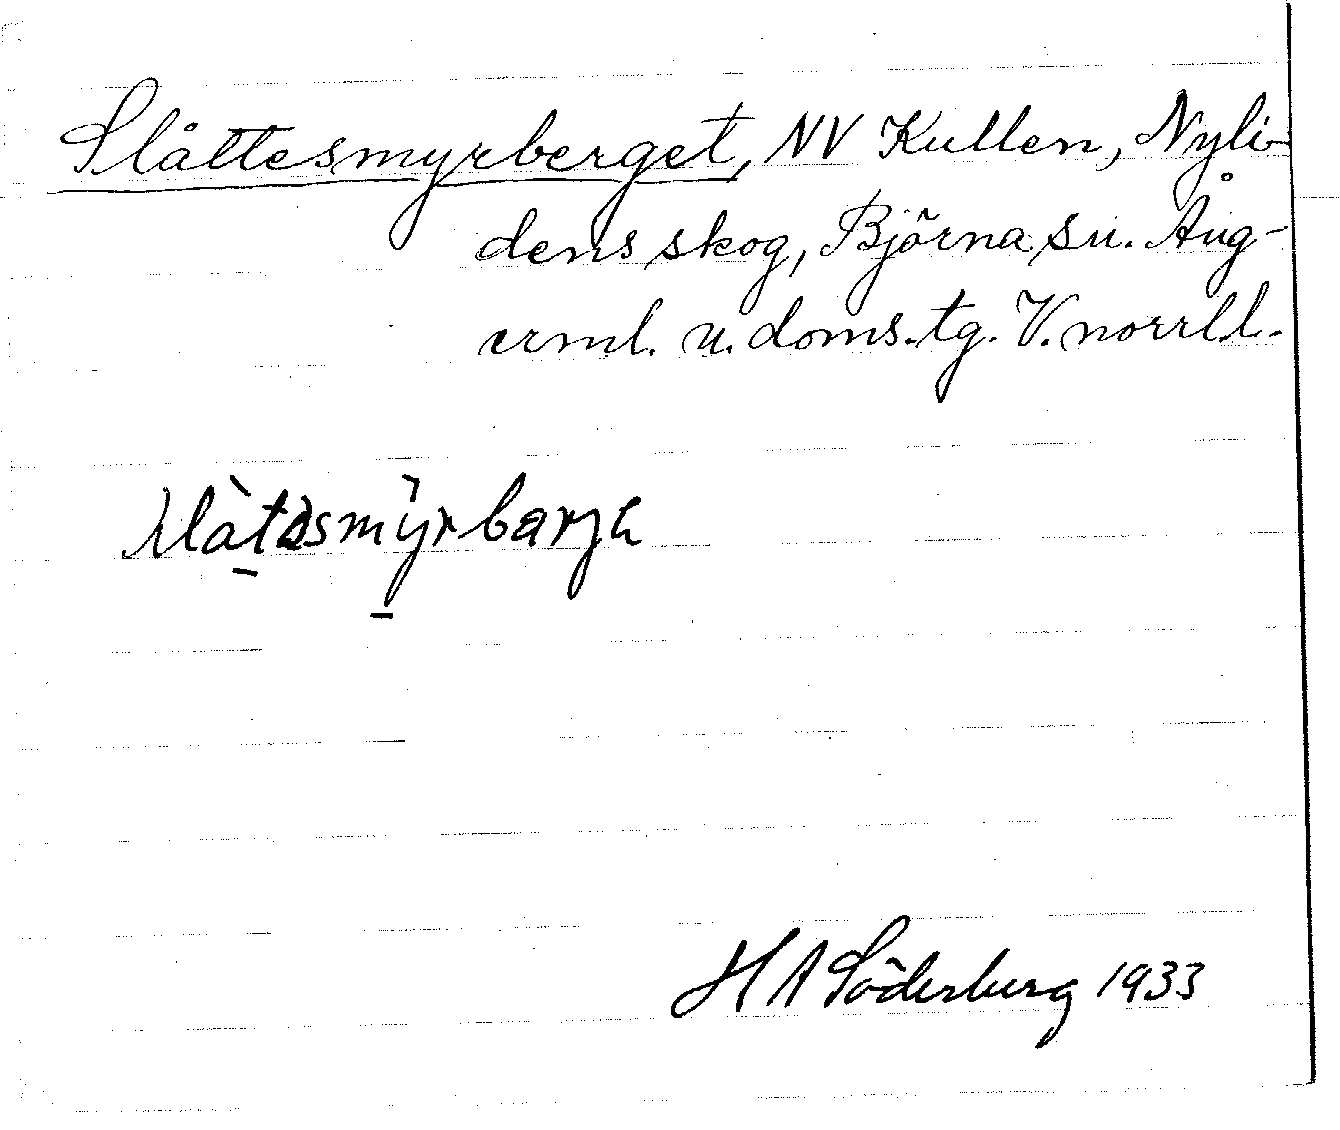 Slåttesmyrberget, NV Kullen, Nyli-
dens skog, Björna sn. Ång-
erml. n. doms.tg. V.norrl.l.
slàtəsmỳrbarjə
H A Söderberg 1933